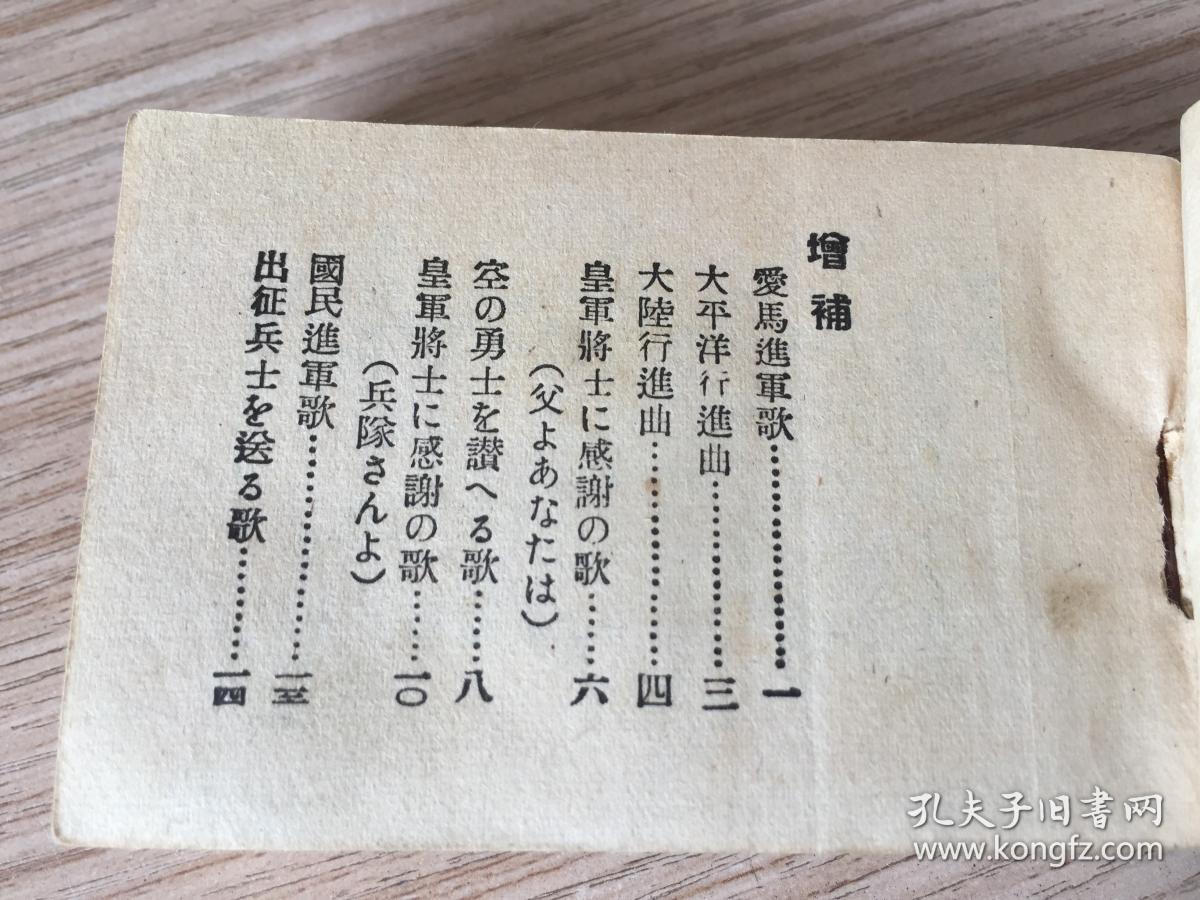 増補
愛馬進軍歌……………………一
大平洋行進曲…………………三
大陸行進曲……………………四
皇軍將士に感謝の歌……六
（父よあなたは）
空の勇士を讃へる歌……八
皇軍將士に感謝の歌……一〇
（兵隊さんよ）
國民進軍歌…………………一三
出征兵士を送る歌…………一四
孔夫子旧书网
www.kongfz.com